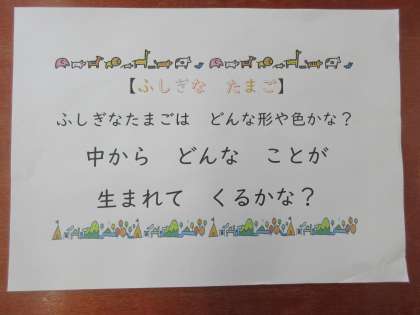 【ふしぎな　たまご】
ふしぎなたまごは　どんな形や色かな？
中から　どんな　ことが
生まれて　くるかな？